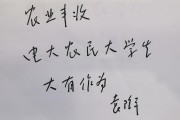 农业丰收
电大农民大学生
大有作为
袁隆平